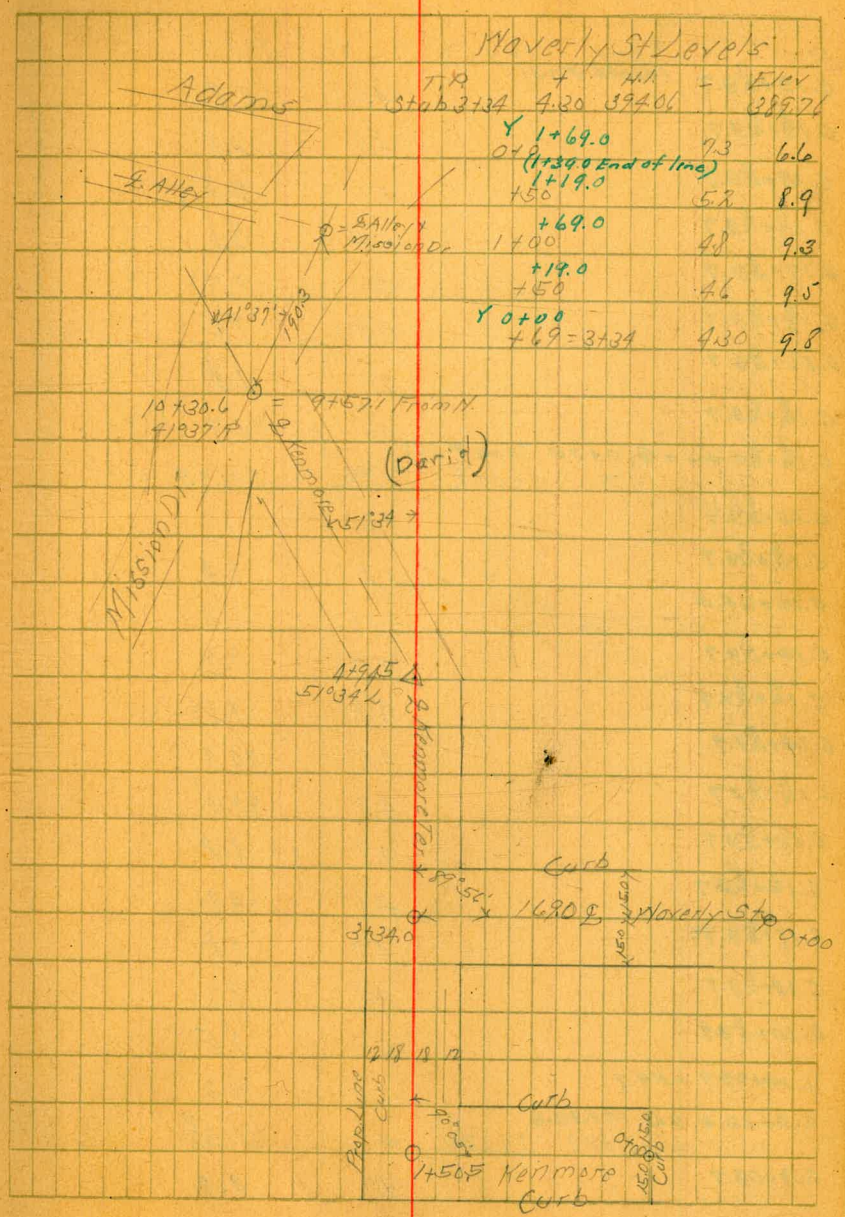 Waverly St Levels
T.P. + H.I. - Elev
Stub 3+34 4.30 394.06 389.76
Y 1+69.0
0+0 7.3 6.6
(1+39.0 End of line)
1+19.0
+50 5.2 8.9
+69.0
1+00 4.8 9.3
+19.0
+50 4.6 9.5
Y 0+00
+69=3+34 4.30 9.8
Adams
℄ Alley
= ℄ Alley &
Mission Dr.
41°37'
190.3
10+30.6
41°37'R
= ℄ Kenmore
9+57.1 From N.
(David)
51°34
Mission Dr
4+94.5
51°34 L
℄ Kenmore Ter
Curb
89°56'
169.0 ℄ Waverly St
15.0 15.0
0+00
3+34.0
12 18 18 12
Prop. Line
Curb
Curb
90°05'
0+00
15.0 15.0
Curb
1+50.5 Kenmore
Curb